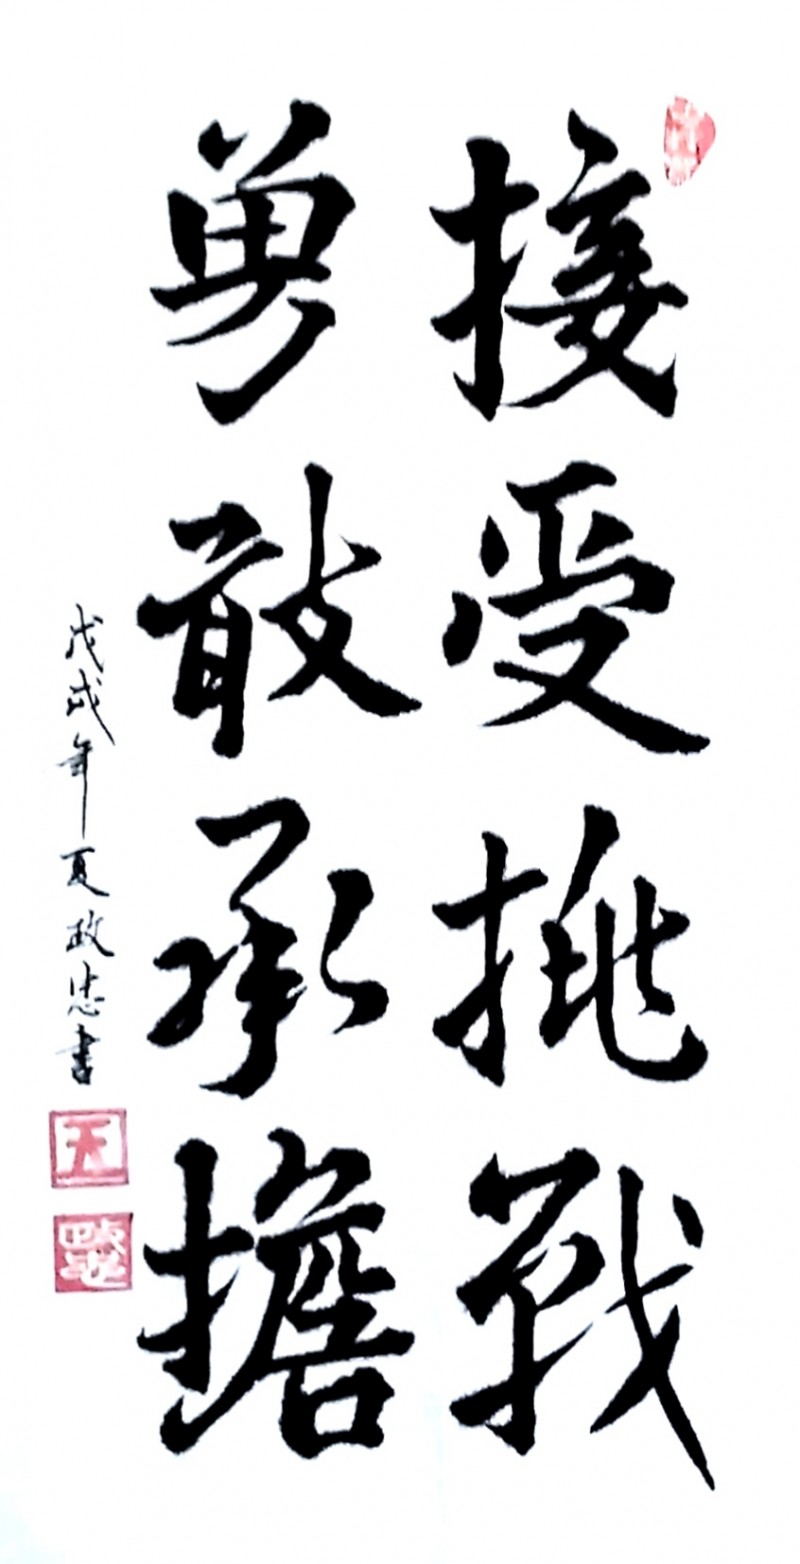 接受挑戰
勇敢承擔
戊戌年夏政忠書